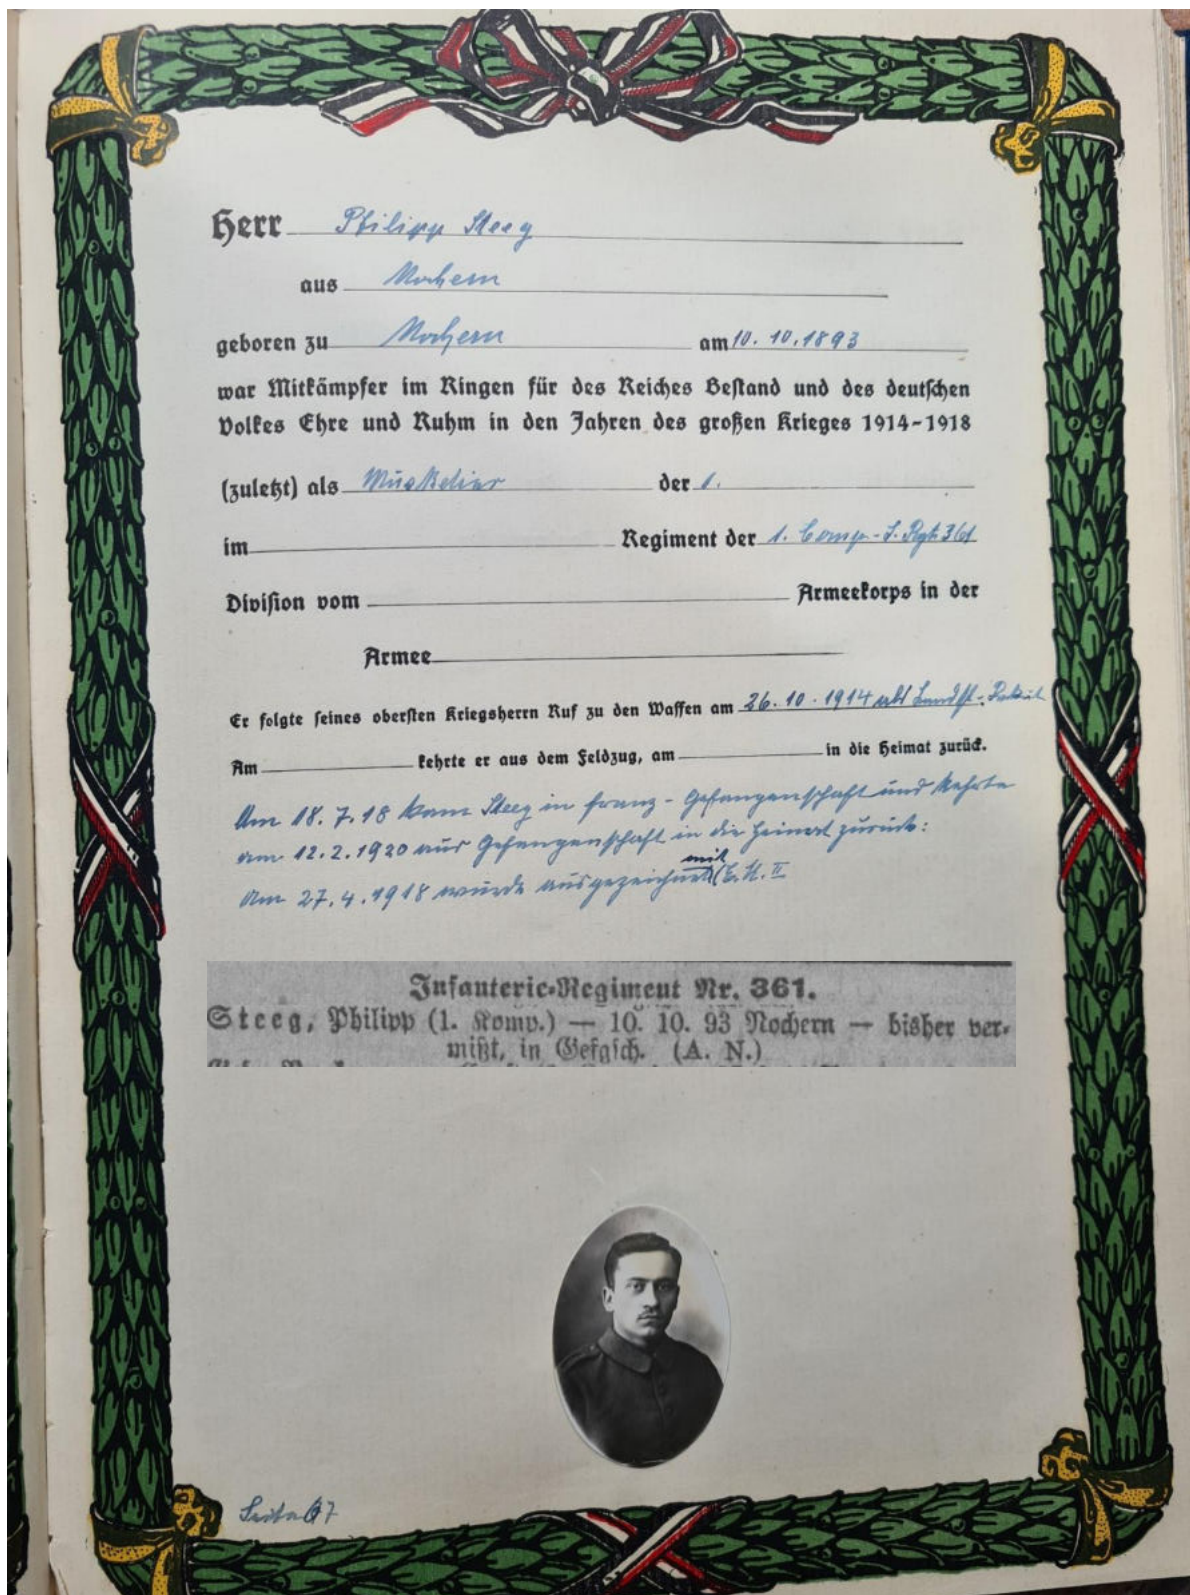 Herr Philipp Steeg
aus Nochern
geboren zu Nochern am 10. 10. 1893
war Mitkämpfer im Ringen für des Reiches Bestand und des deutschen
Volkes Ehre und Ruhm in den Jahren des großen Krieges 1914-1918
(zuletzt) als Musketier der 1.
im Regiment der 1. Comp.-I. Rgt. 361
Division vom Armeekorps in der
Armee
Er folgte seines obersten Kriegsherrn Ruf zu den Waffen am 26. 10. 1914 als Landst.-Rekrut
Am kehrte er aus dem Feldzug, am in die Heimat zurück.
Am 18. 7. 18 kam Steeg in franz-Gefangenschaft und kehrte
am 12. 2. 1920 aus Gefangenschaft in die Heimat zurück:
Am 27. 4. 1918 wurde ausgezeichnet mit E. K. II
Infanterie-Regiment Nr. 361.
Steeg, Philipp (1. Komp.) — 10. 10. 93 Nochern — bisher ver-
mißt, in Gefgsch. (A. N.)
Seite 67